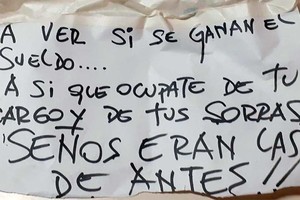 A VER SI SE GANAN EL
SUELDO....
A SI QUE OCUPATE DE TU
CARGO Y DE TUS SORRAS
SEÑOS ERAN LAS
DE ANTES!!